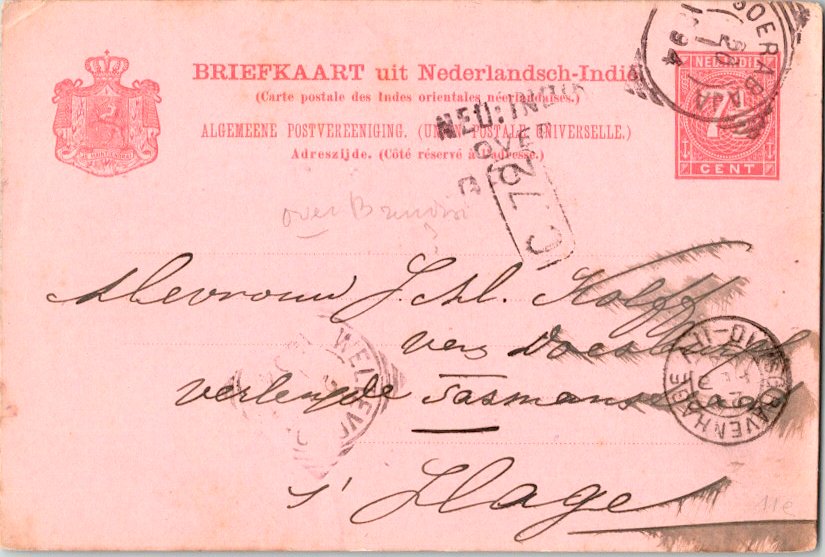 BRIEFKAART uit Nederlandsch-Indië
(Carte postale des Indes orientales néerlandaises.)
ALGEMEENE POSTVEREENIGING. (UNION POSTALE UNIVERSELLE.)
Adreszijde. (Côté réservé à l'adresse.)
NED. INDIE
7½
CENT
SOERABAJA
NED: INDIE
OVER
over Brindisi
Mevrouw J. M. Kolff
verlengde Tasman
's Hage
WELTEVR
'S GRAVENHAGE
11e